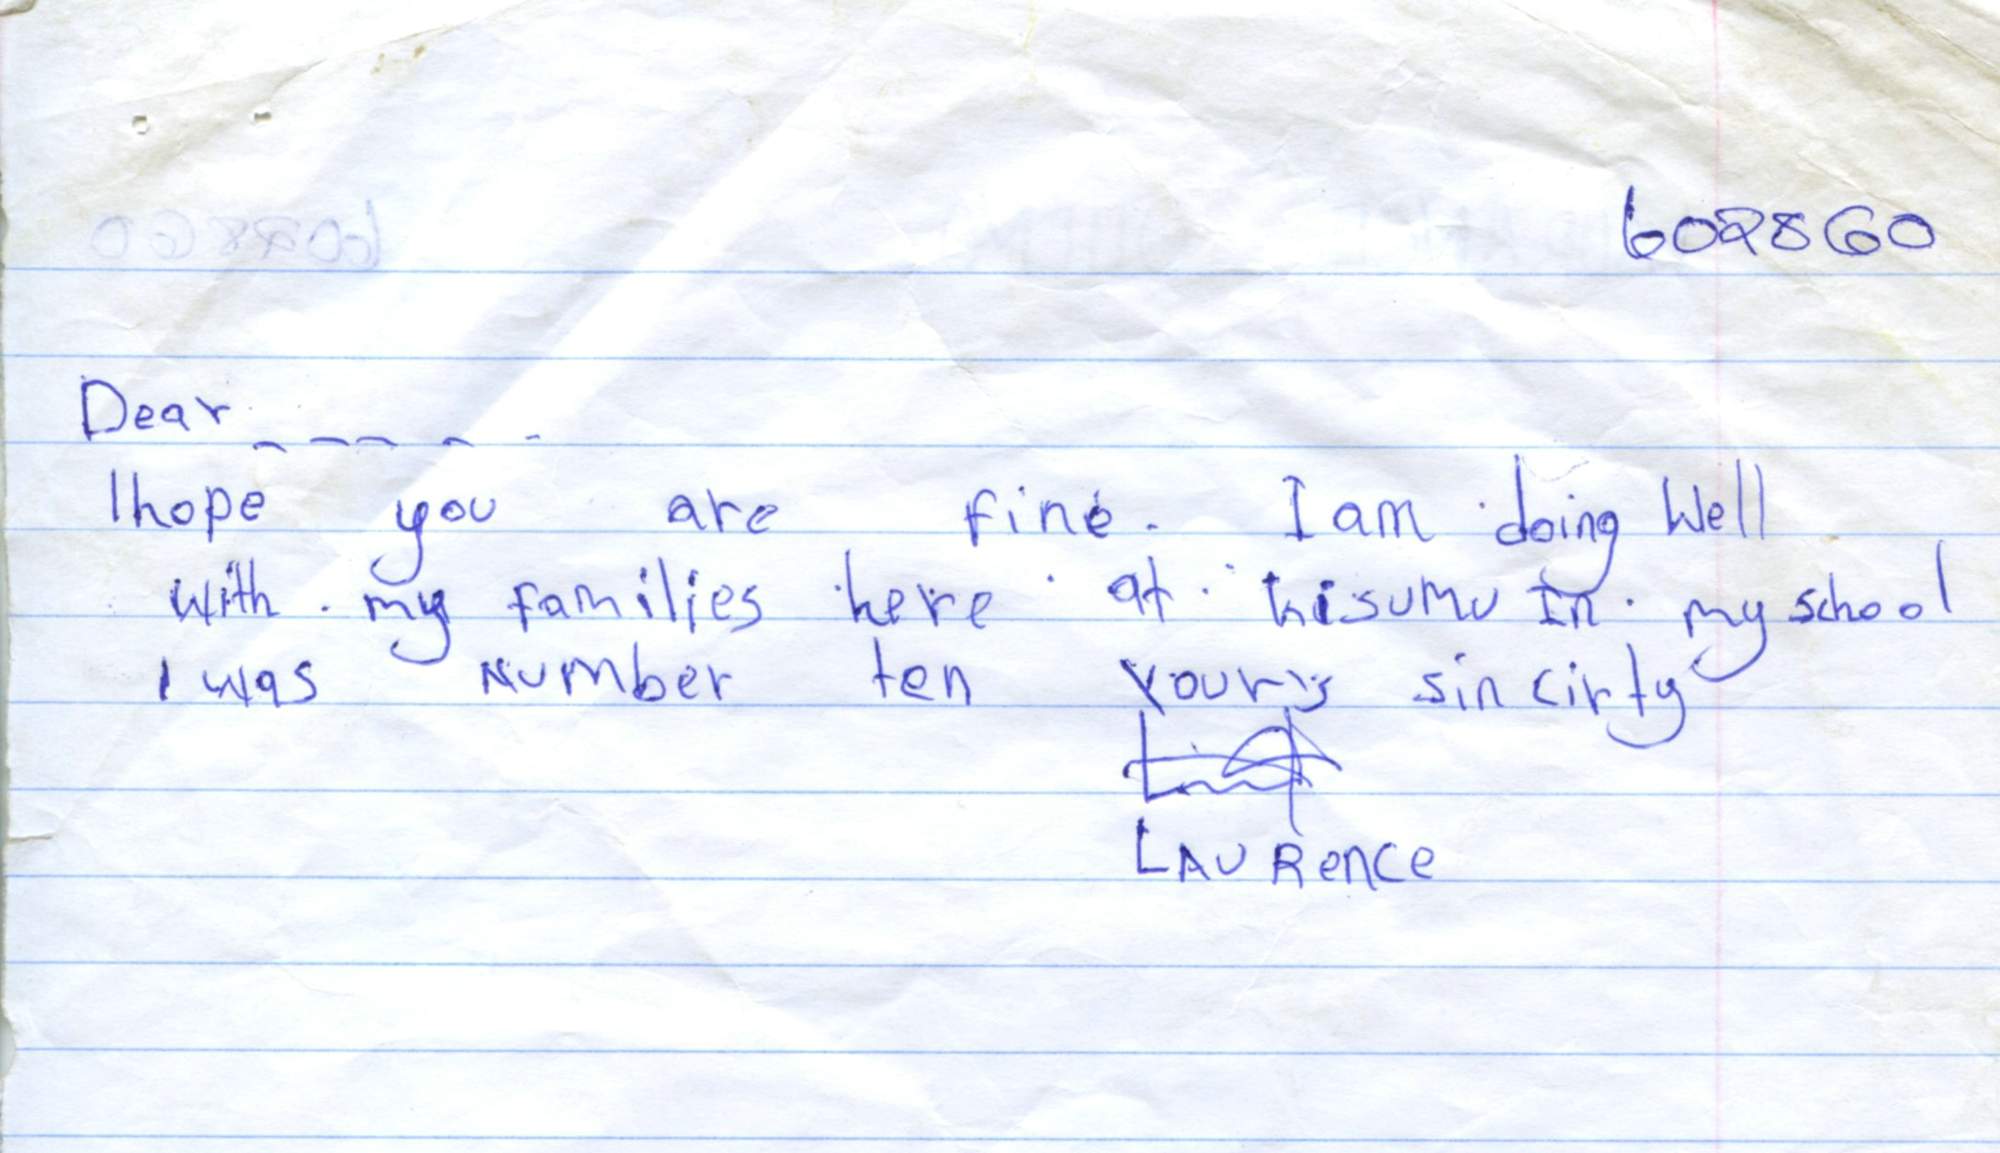 602860
Dear _ _ _ _ _
I hope you are fine. I am doing Well
with my families here at kisumu In my school
I was Number ten yours sincirty
LAURence